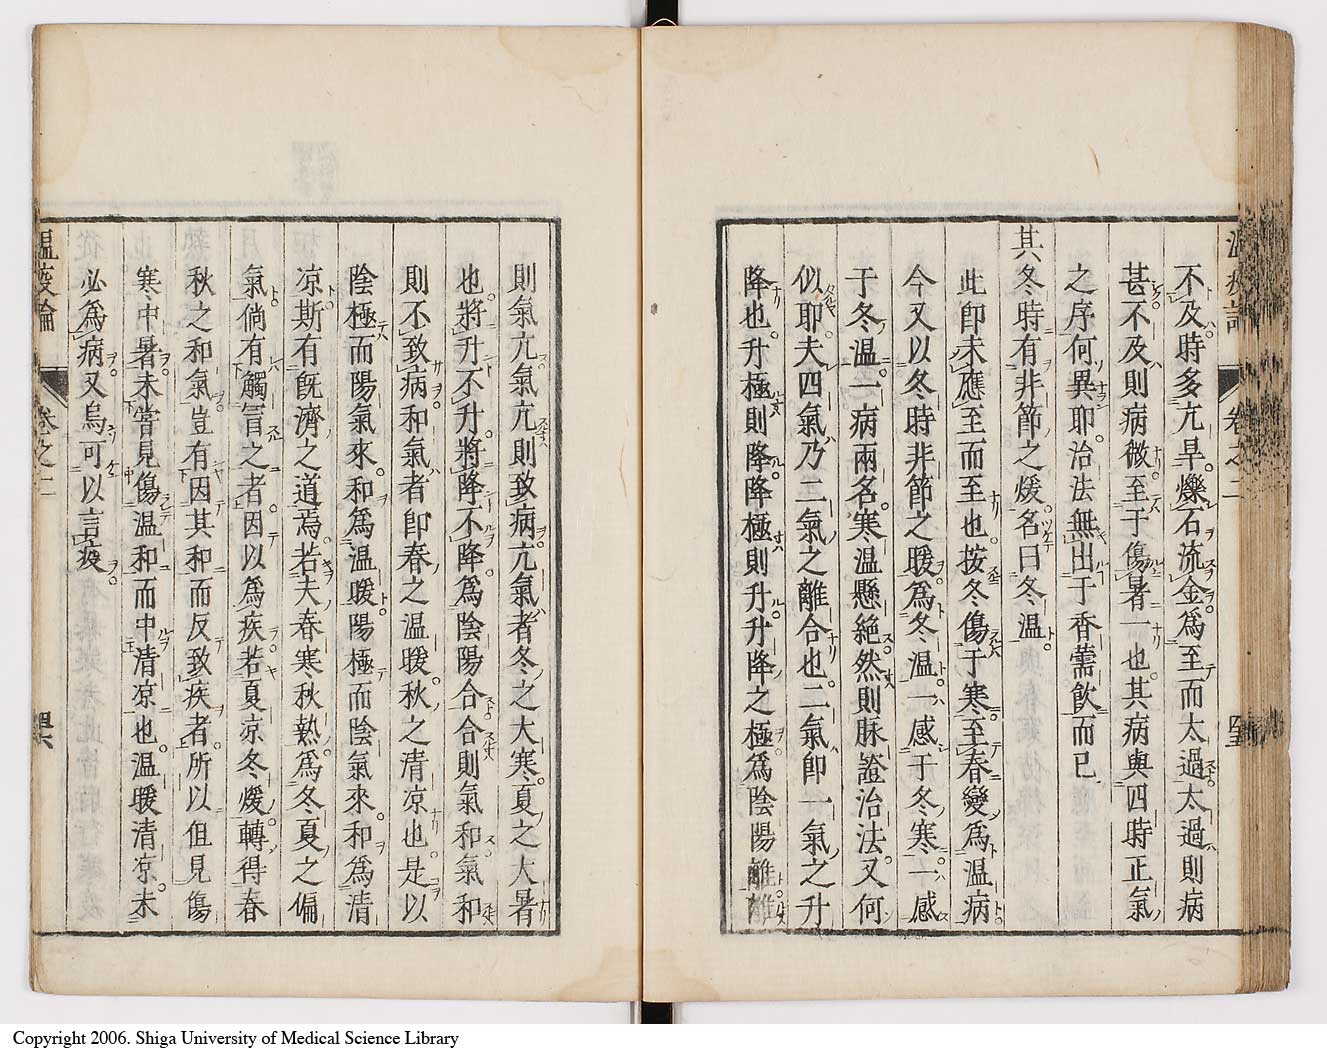 温疫論 卷之二
不及時多亢旱。爍石流金。爲至而太過。太過則病
甚。不及則病微。至于傷暑一也。其病與四時正氣
之序何異耶。治法無出于香薷飲而已
其冬時有非節之煖。名曰冬温。
此卽未應至而至也。按冬傷于寒。至春變爲温病。
今又以冬時非節之暖。爲冬温。一感于冬寒。一感
于冬温。一病兩名。寒温懸絶。然則脉證治法。又何
似耶。夫四氣乃二氣之離合也。二氣卽一氣之升
降也。升極則降。降極則升。升降之極。爲陰陽離。離
則氣亢。氣亢則致病。亢氣者。冬之大寒。夏之大暑
也。將升不升。將降不降。爲陰陽合。合則氣和。氣和
則不致病。和氣者。卽春之温暖。秋之清凉也。是以
陰極而陽氣來。和爲温暖。陽極而陰氣來。和爲清
凉。斯有旣濟之道焉。若夫春寒秋熱。爲冬夏之偏
氣。倘有觸冒之者。因以爲疾。若夏凉冬煖。轉得春
秋之和氣。豈有因其和而反致疾者。所以但見傷
寒中暑。未嘗見傷温和而中清凉也。温暖清凉。未
必爲病。又烏可以言疫。
温疫論 卷之二